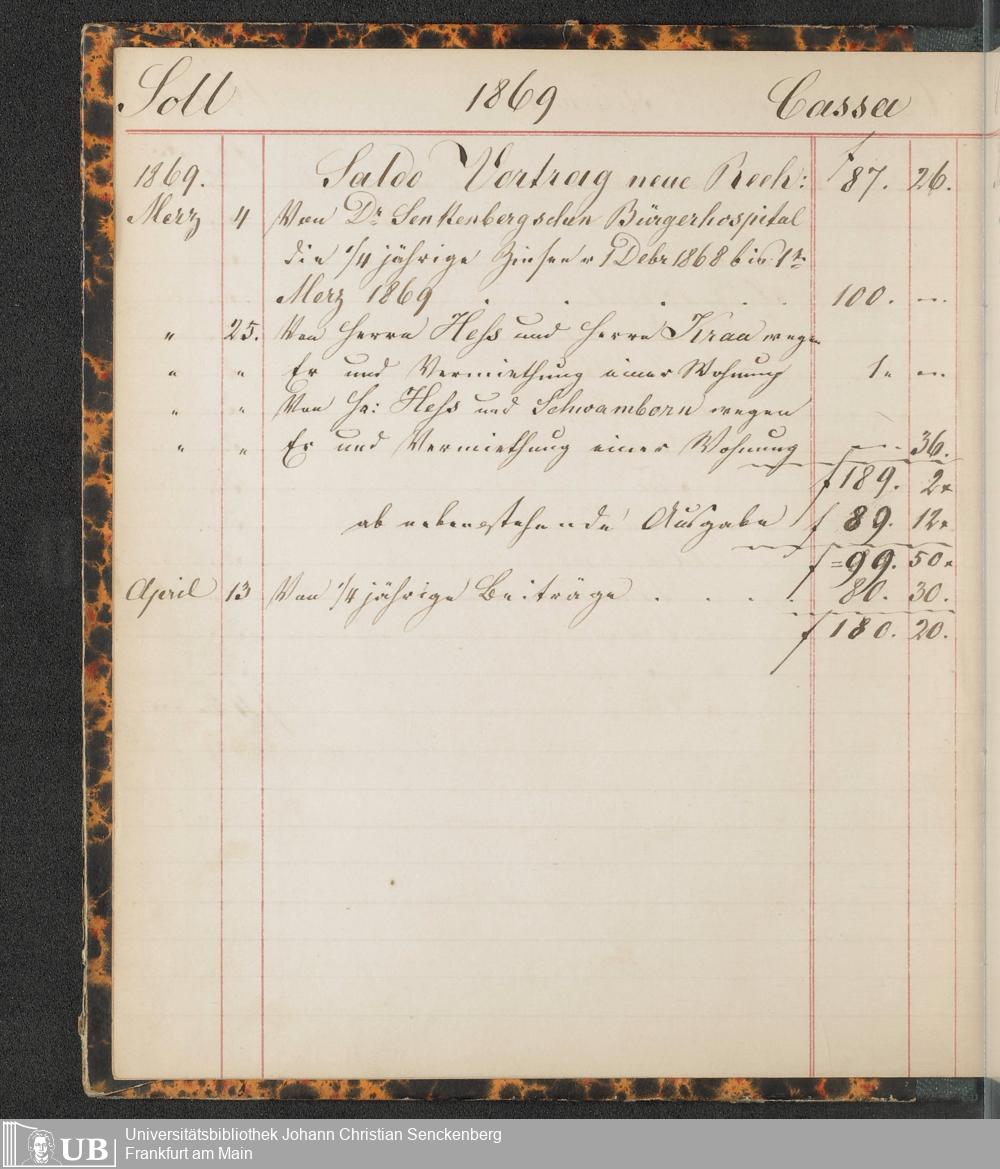 Soll 1869 Cassa
1869. Saldo Vortrag neue Rech: f 87. 26.
Merz 4 Von Dr Senkenbergschen Bürgerhospital
die 1/4 jährige Zinsen v 1 Debr 1868 bis 1tn
Merz 1869 . . . . . 100. —
" 25. Von Herrn Hess und Herrn Kraa wegen
" " Er und Vermiethung einer Wohnung 1. —
" " Von Hr: Hess und Schwamborn wegen
" " Er und Vermiethung einer Wohnung — 36.
f 189. 2.
ab nebenstehende Ausgabe f 89. 12.
f =99. 50.
April 13 Von 1/4 jährige Beiträge . . . . 80. 30.
f 180. 20.
UB
Universitätsbibliothek Johann Christian Senckenberg
Frankfurt am Main